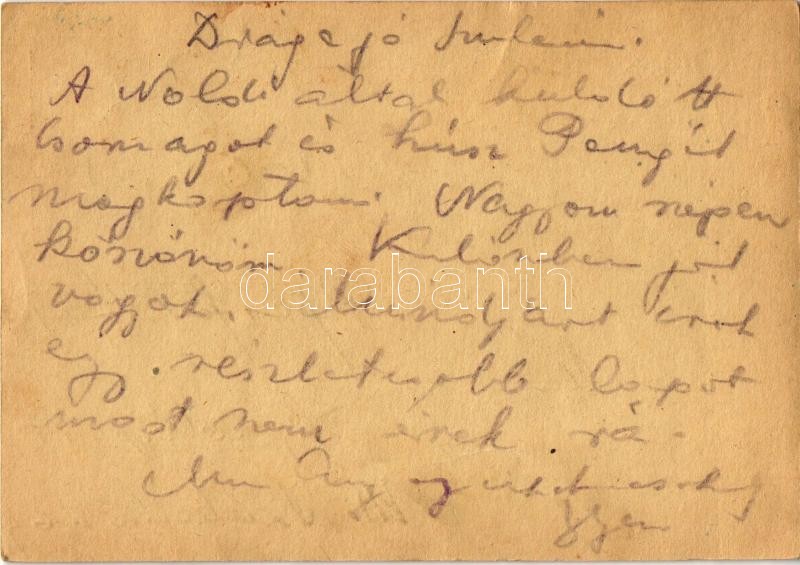 Drága jó
A Noldi által küldött
csomagot és húsz Pengőt
megkaptam. Nagyon szépen
köszönöm. Különben jól
vagyok. Mindjárt írok
egy részletesebb lapot
most nem érek rá.
darabanth